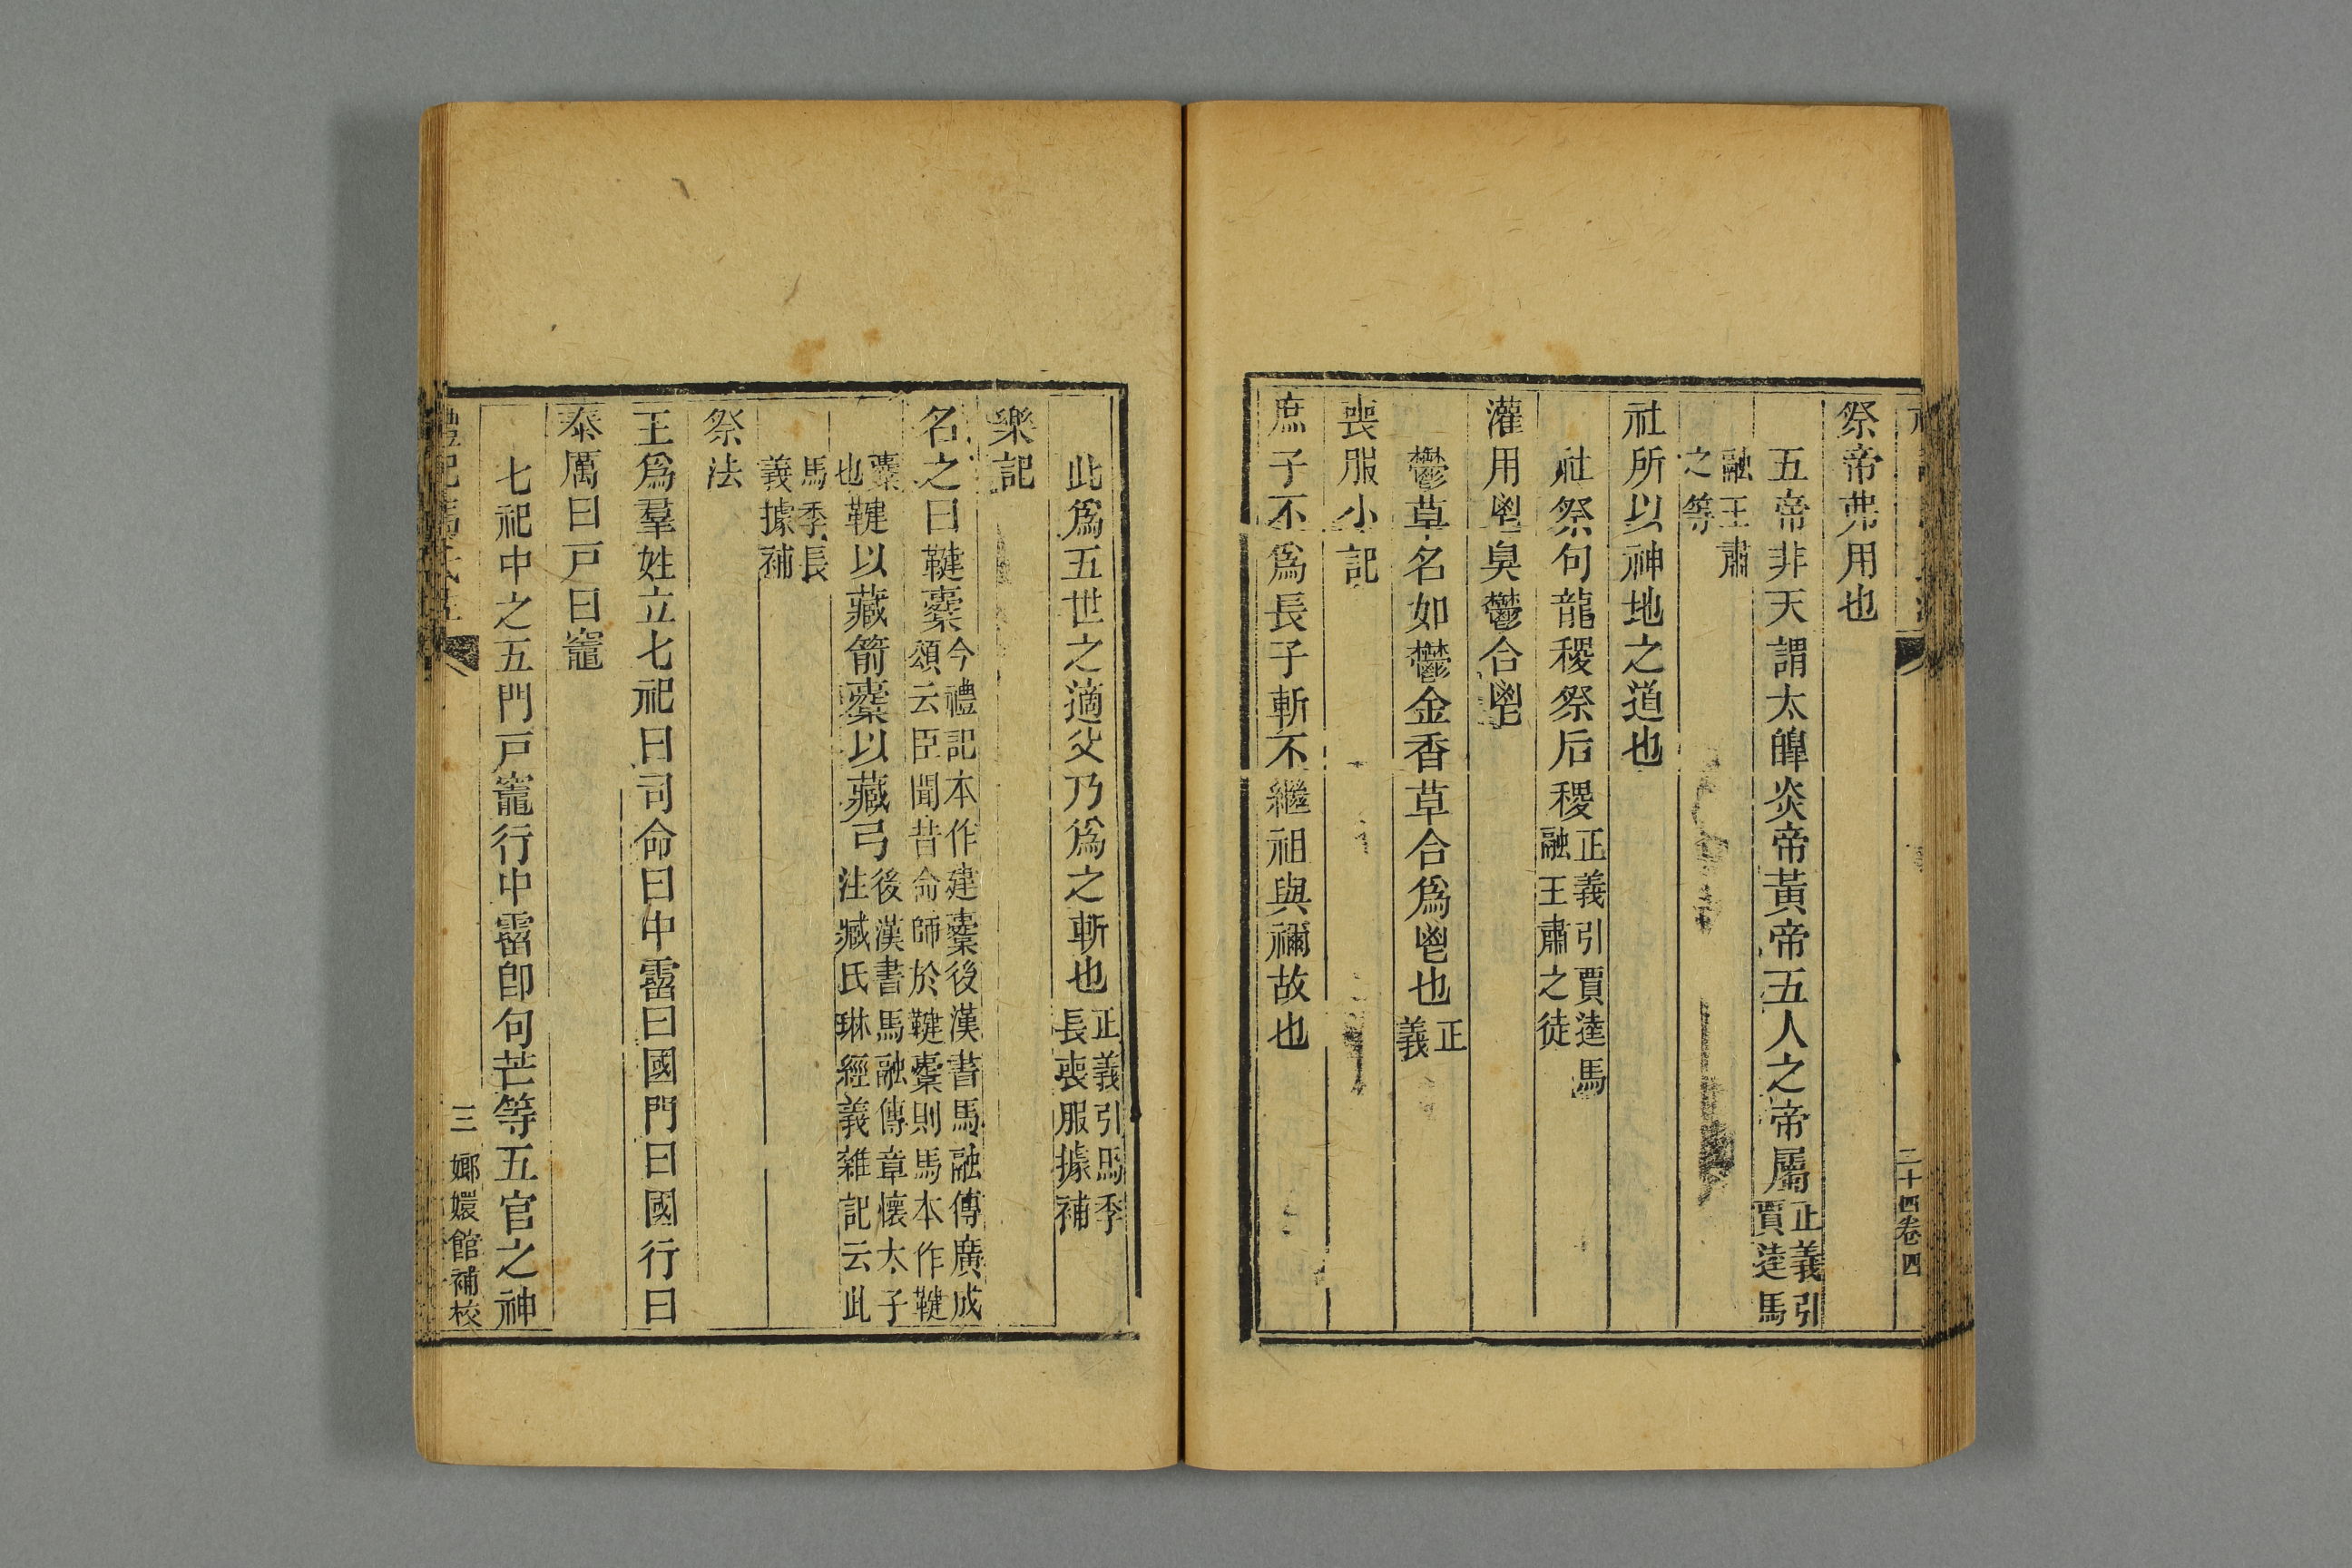 二十四卷四
祭帝弗用也
五帝非天謂太皥炎帝黃帝五人之帝屬正義引賈逵馬
融王肅之等
社所以神地之道也
社祭句龍稷祭后稷正義引賈逵馬融王肅之徒
灌用鬯臭鬱合鬯
鬱草名如鬱金香草合爲鬯也正義
喪服小記
庶子不爲長子斬不繼祖與禰故也
此爲五世之適父乃爲之斬也正義引馬季長喪服據補
樂記
名之曰鞬櫜今禮記本作建櫜後漢書馬融傳廣成頌云臣聞昔命師於鞬櫜則馬本作鞬
櫜也鞬以藏箭櫜以藏弓後漢書馬融傳章懷太子注臧氏琳經義雜記云此
馬季長義據補
祭法
王爲羣姓立七祀曰司命曰中霤曰國門曰國行曰
泰厲曰戸曰竈
七祀中之五門戸竈行中霤卽句芒等五官之神
三 嫏嬛館補校